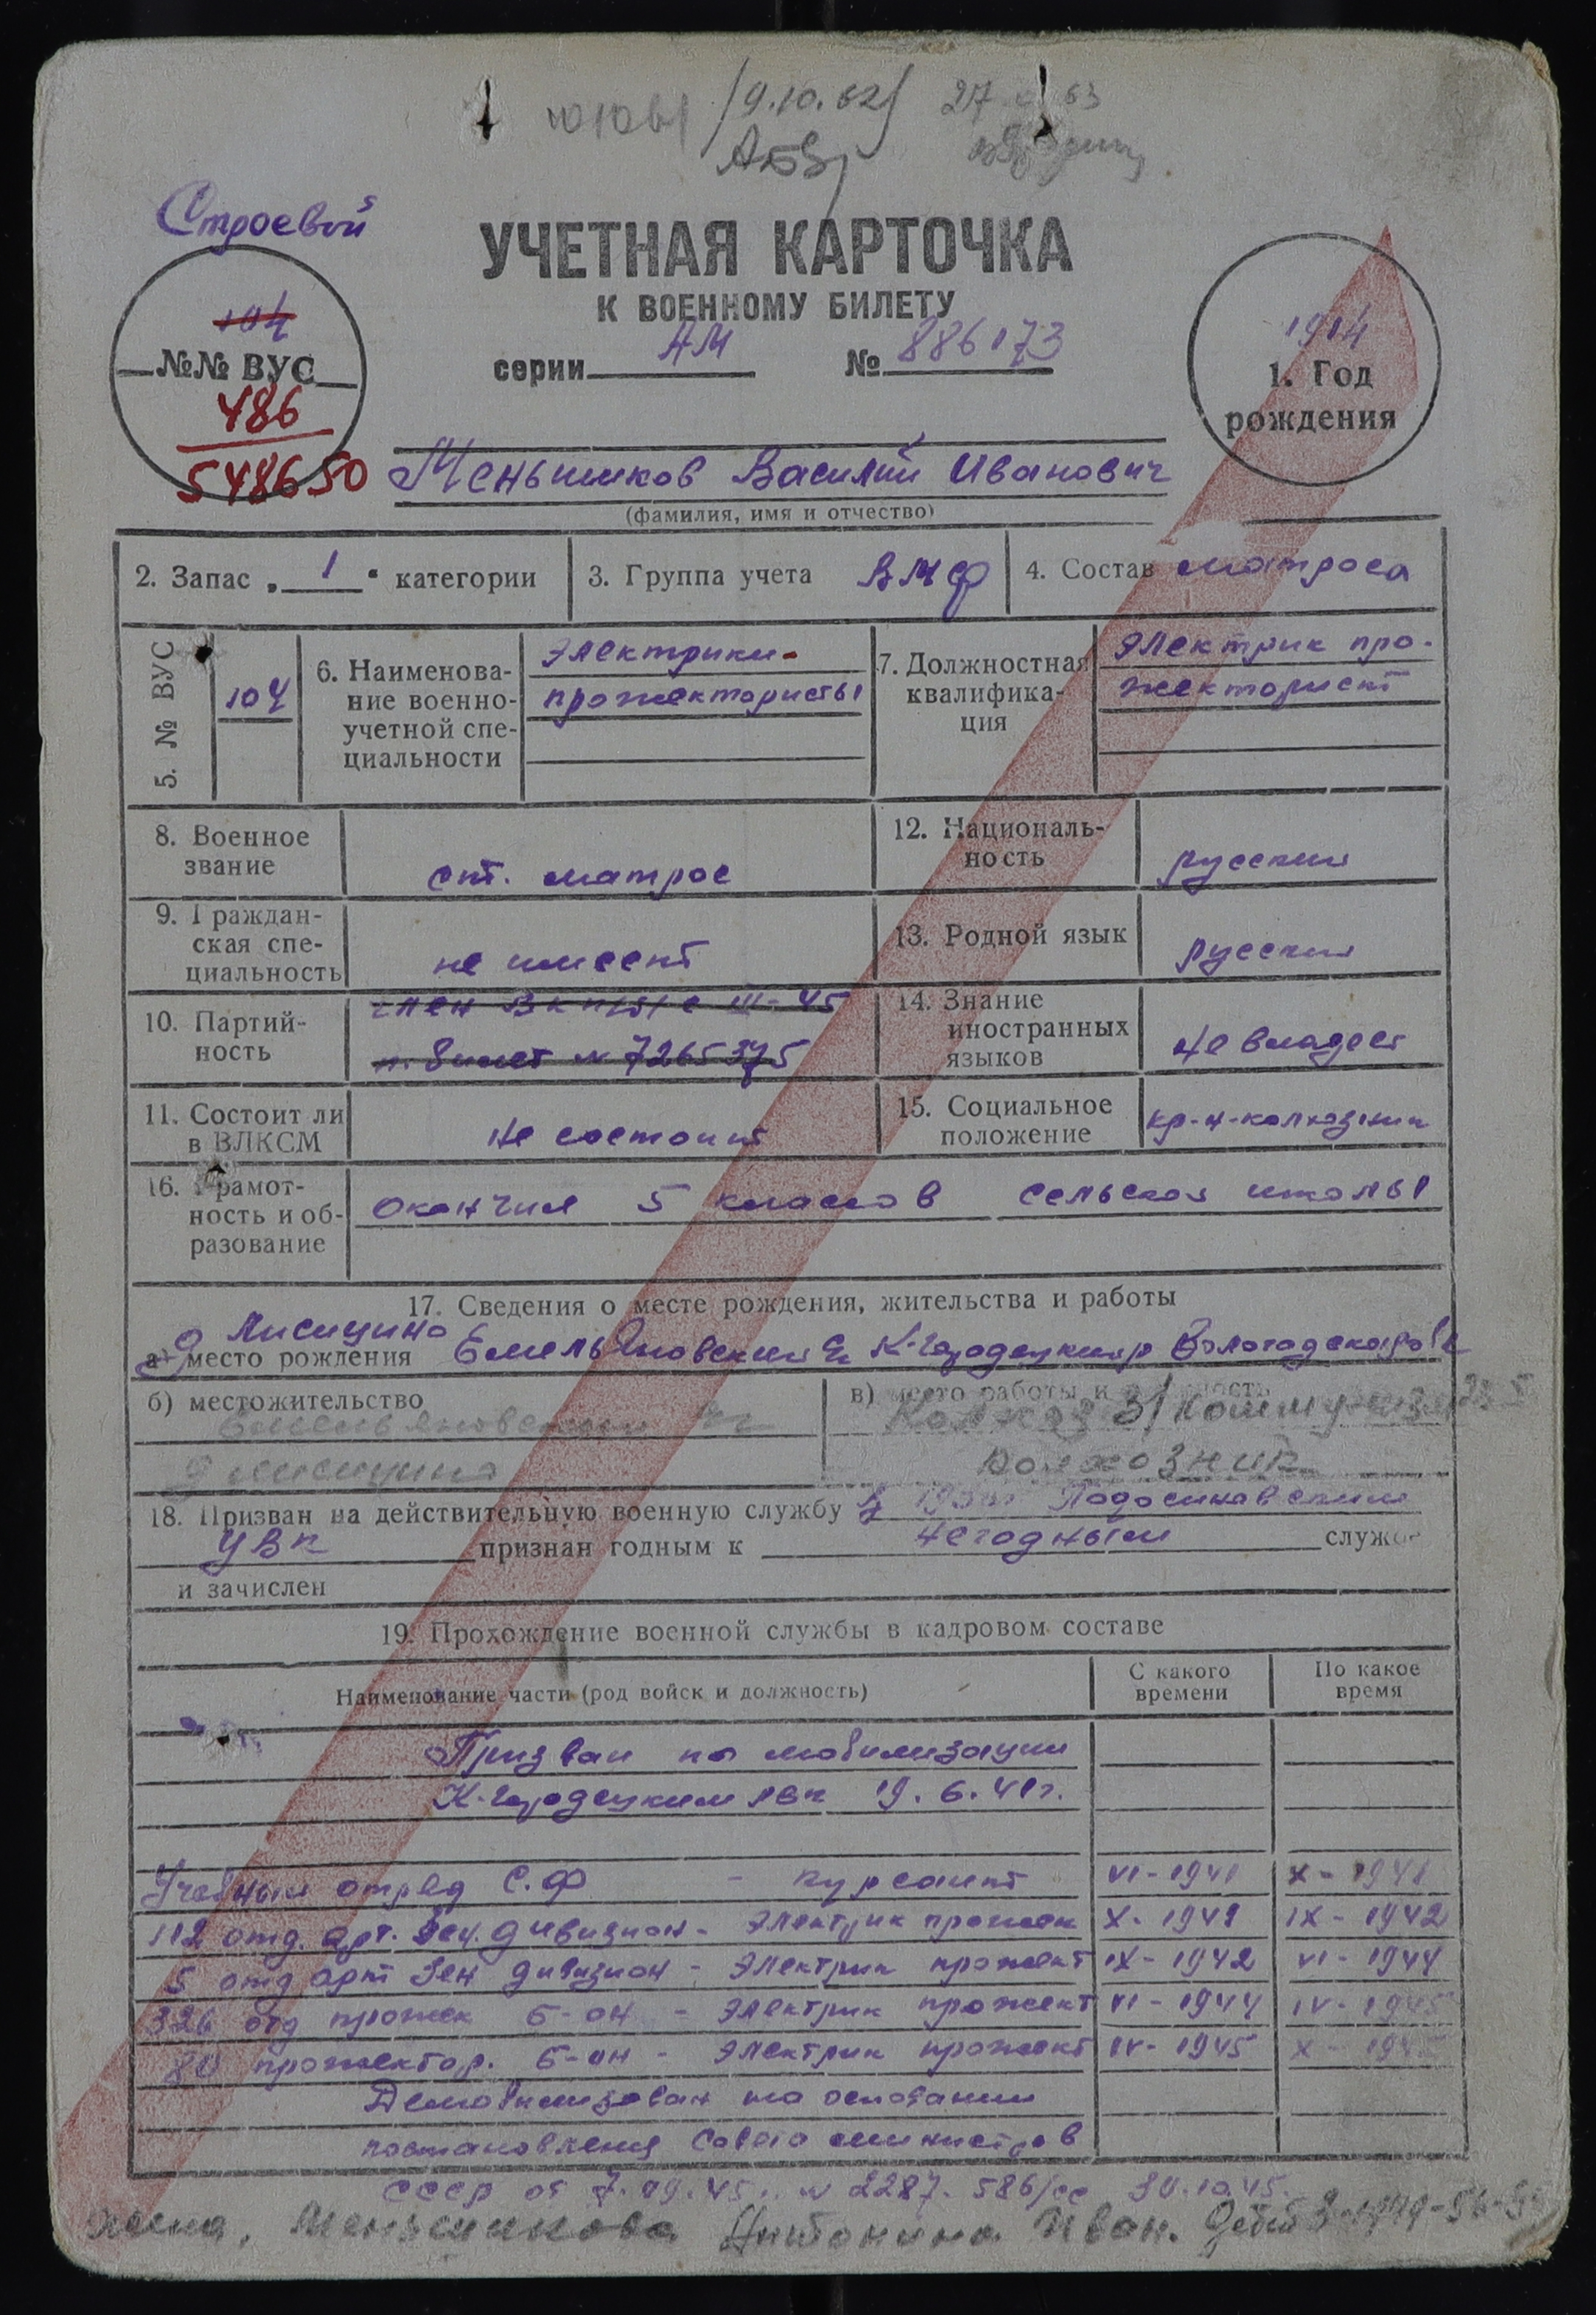 19.10.62
Строевой
УЧЕТНАЯ КАРТОЧКА
К ВОЕННОМУ БИЛЕТУ
серии АМ № 886173
104
№№ ВУС
486
548650
1914
1. Год
рождения
Меньшиков Василий Иванович
(фамилия, имя и отчество)
2. Запас „1“ категории
3. Группа учета ВМФ
4. Состав матроса
5. № ВУС
104
6. Наименова-
ние военно-
учетной спе-
циальности
Электрики-
прожектористы
7. Должностная
квалифика-
ция
Электрик про-
жекторист
8. Военное
звание
ст. матрос
12. Националь-
ность
русский
9. Граждан-
ская спе-
циальность
не имеет
13. Родной язык
русский
10. Партий-
ность
член ВКП/б/ с III-45
п. билет № 7265375
14. Знание
иностранных
языков
не владеет
11. Состоит ли
в ВЛКСМ
не состоит
15. Социальное
положение
кр-н-колхозник
16. Грамот-
ность и об-
разование
окончил 5 классов сельской школы
17. Сведения о месте рождения, жительства и работы
д Лисицино
а) место рождения Емельяновский К-Городецкий р Вологодской
б) местожительство
Емельяновский
д Лисицино
в) место работы и должность
Колхоз
колхозник
18. Призван на действительную военную службу Подосиновским
УВК признан годным к негодным служ
и зачислен
19. Прохождение военной службы в кадровом составе
Наименование части (род войск и должность)
С какого
времени
По какое
время
Призван по мобилизации
К-Городецким РВК 19.6.41г.
Учебный отряд С.Ф - курсант VI-1941 X-1941
112 отд. арт. зен. дивизион - Электрик прожек X-1941 IX-1942
5 отд арт зен дивизион - Электрик прожект IX-1942 VI-1944
326 отд прожек б-он - Электрик прожект VI-1944 IV-1945
80 прожектор. б-он - Электрик прожект IV-1945 X-1945
Демобилизован на основании
постановления Совета министров
СССР от 7.09.45 № 2287-586/сс 30.10.45.
Жена, Меньшикова Антонина Иван. Дети